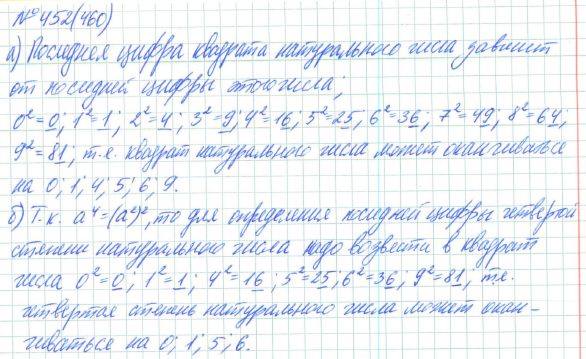 №452(460)
а) Последняя цифра квадрата натурального числа зависит
от последней цифры этого числа;
0²=0; 1²=1; 2²=4; 3²=9; 4²=16; 5²=25; 6²=36; 7²=49; 8²=64;
9²=81; т.е. квадрат натурального числа может оканчиваться
на 0; 1; 4; 5; 6; 9.
б) Т.к. a⁴=(a²)², то для определения последней цифры четвертой
степени натурального числа надо возвести в квадрат
числа 0²=0; 1²=1; 4²=16; 5²=25; 6²=36; 9²=81; т.е.
четвертая степень натурального числа может окан-
чиваться на 0; 1; 5; 6.